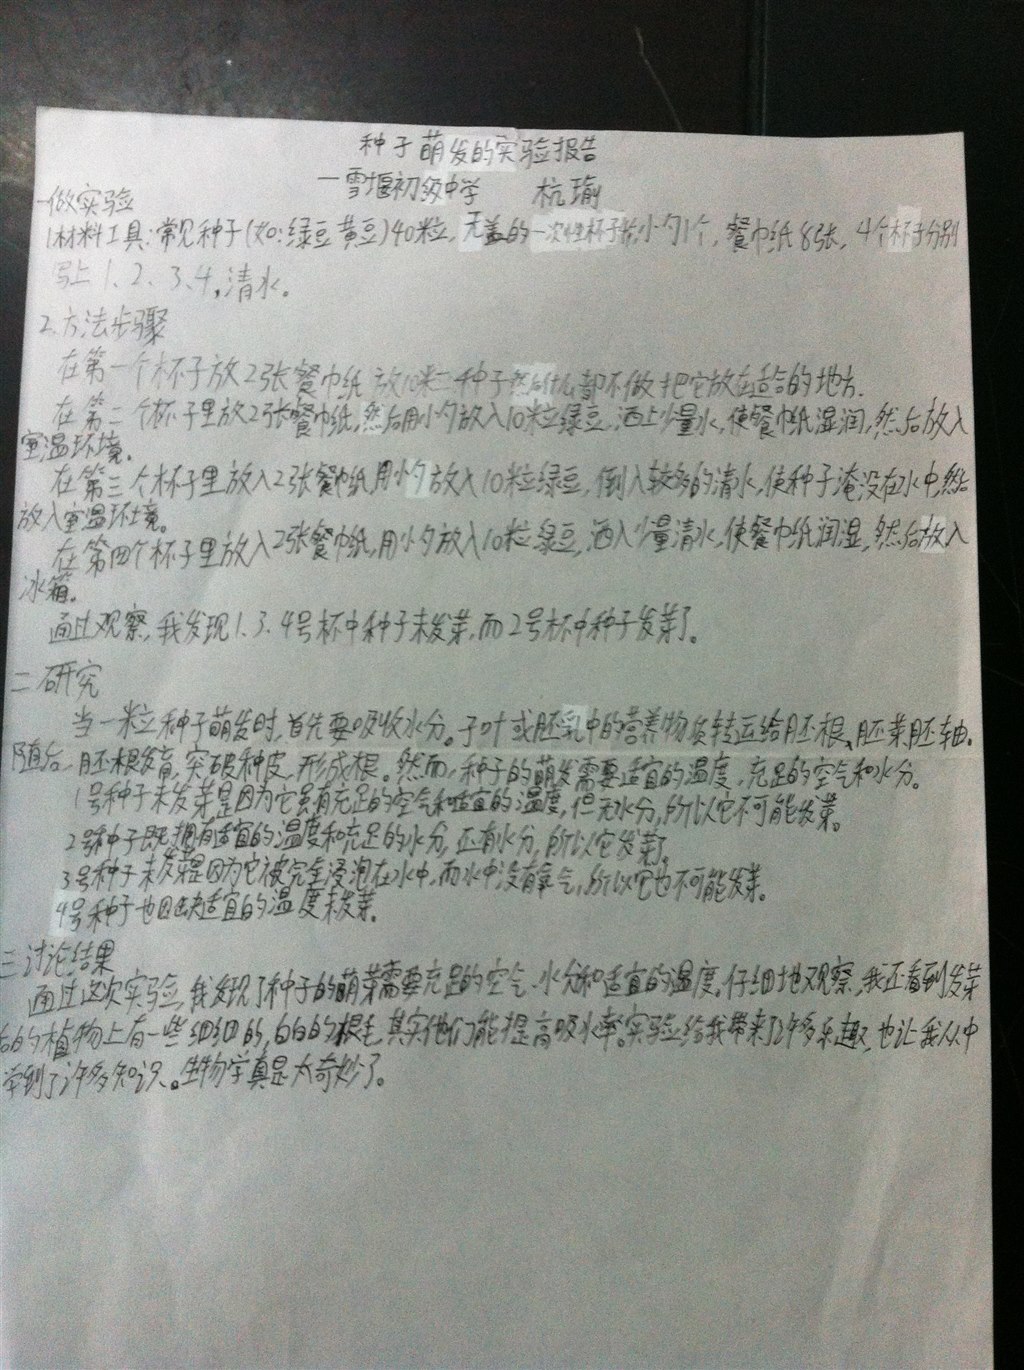 种子萌发的实验报告
一雪堰初级中学 杭瑜
一做实验
1材料工具:常见种子(如:绿豆黄豆)40粒,无盖的一次性杯子,小勺1个,餐巾纸8张,4个杯子分别
写上1、2、3、4,清水。
2.方法步骤
在第一个杯子放2张餐巾纸 放10米立种子然后什么都不做把它放在适合的地方.
在第二个杯子里放2张餐巾纸,然后用小勺放入10粒绿豆.洒上少量水,使餐巾纸湿润,然后放入
室温环境。
在第三个杯子里放入2张餐巾纸,用小勺放入10粒绿豆,倒入较多的清水,使种子淹没在水中,然后
放入室温环境。
在第四个杯子里放入2张餐巾纸,用小勺放入10粒绿豆,洒入少量清水,使餐巾纸润湿,然后放入
冰箱。
通过观察,我发现1.3.4号杯中种子未发芽,而2号杯中种子发芽了。
二研究
当一粒种子萌发时,首先要吸收水分。子叶或胚乳中的营养物质转运给胚根、胚芽、胚轴。
随后,胚根发育,突破种皮,形成根。然而,种子的萌发需要适宜的温度,充足的空气和水分。
1号种子未发芽是因为它虽有充足的空气和适宜的温度,但无水分,所以它不可能发芽。
2号种子既拥有适宜的温度和充足的水分,还有水分,所以它发芽了。
3号种子未发芽是因为它被完全浸泡在水中,而水中没有氧气,所以它也不可能发芽。
4号种子也因缺适宜的温度未发芽。
三讨论结果
通过这次实验,我发现了种子的萌芽需要充足的空气、水分和适宜的温度。仔细地观察,我还看到发芽
后的植物上有一些细细的,白白的根毛,其实他们能提高吸水率。实验给我带来了许多乐趣,也让我从中
学到了许多知识。生物学真是太奇妙了。